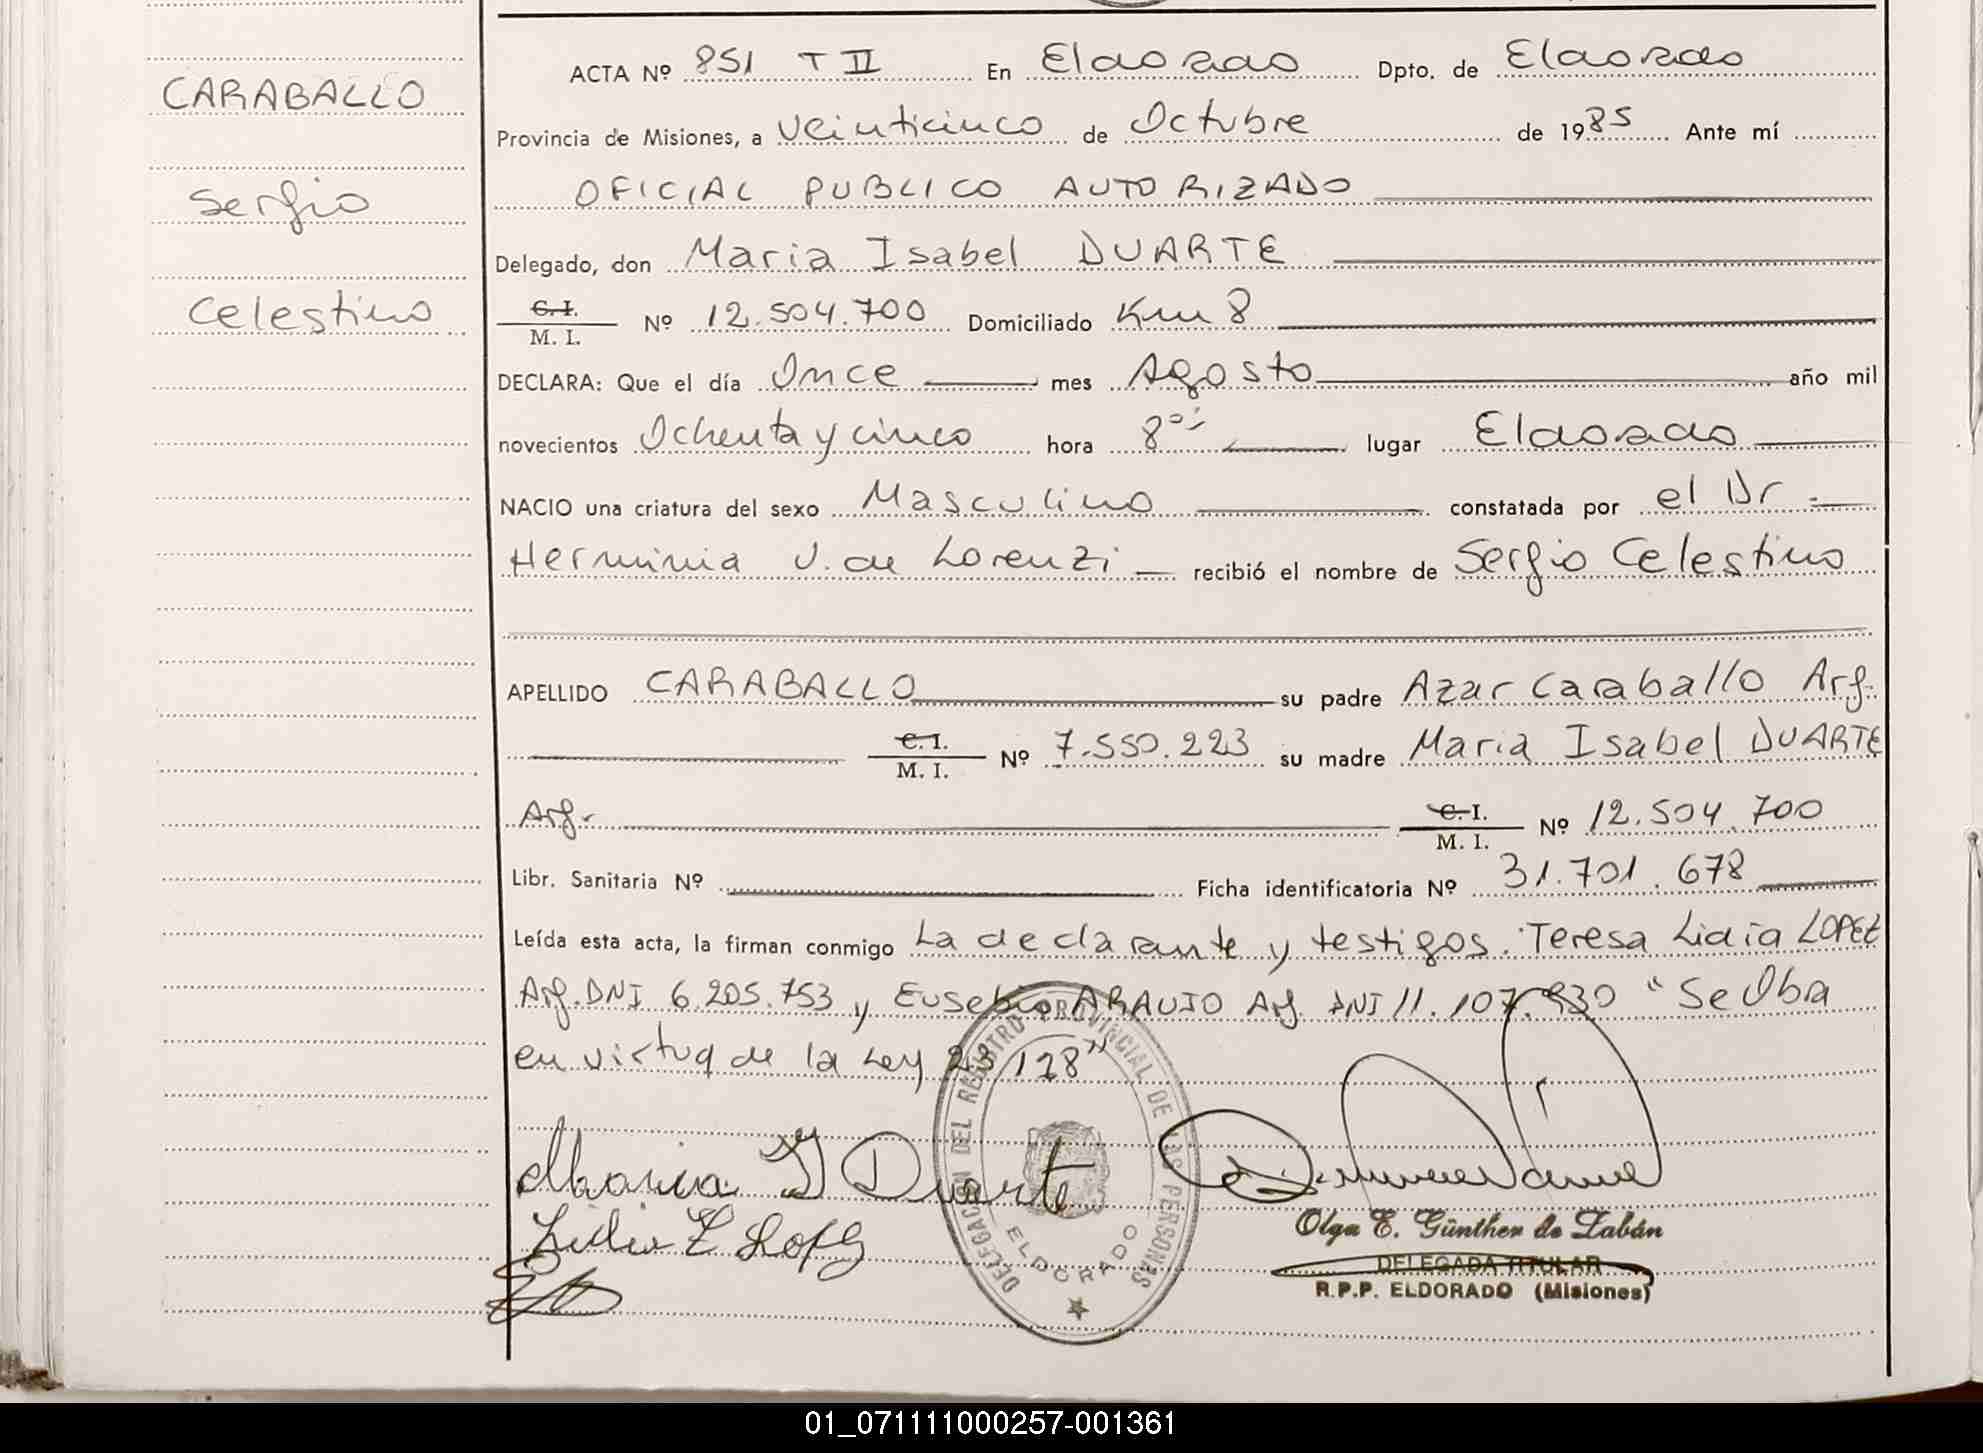 CARABALLO
Sergio
Celestino
ACTA Nº 851 T II En Eldorado Dpto. de Eldorado
Provincia de Misiones, a Veinticinco de Octubre de 1985 Ante mí
OFICIAL PUBLICO AUTORIZADO
Delegado, don Maria Isabel DUARTE
C.I. M. I. Nº 12.504.700 Domiciliado Km 8
DECLARA: Que el día Once mes Agosto año mil
novecientos Ochenta y cinco hora 8 lugar Eldorado
NACIO una criatura del sexo Masculino constatada por el Dr.
Herminia V. de Lorenzi recibió el nombre de Sergio Celestino
APELLIDO CARABALLO su padre Azar Caraballo Arg.
C.I. M. I. Nº 7.550.223 su madre Maria Isabel DUARTE
Arg. C.I. M. I. Nº 12.504.700
Libr. Sanitaria Nº Ficha identificatoria Nº 31.701.678
Leída esta acta, la firman conmigo La declarante y testigos. Teresa Lidia LOPEZ
Arg. DNI 6.205.753 y Eusebio ARAUJO Arg. DNI 11.107.930 "Se Obra
en virtud de la Ley 23 128"
Maria I Duarte
Lidia T Lopez
DELEGACION DEL REGISTRO PROVINCIAL DE LAS PERSONAS
ELDORADO
Olga E. Günther de Zabán
DELEGADA TITULAR
R.P.P. ELDORADO (Misiones)
01_071111000257-001361